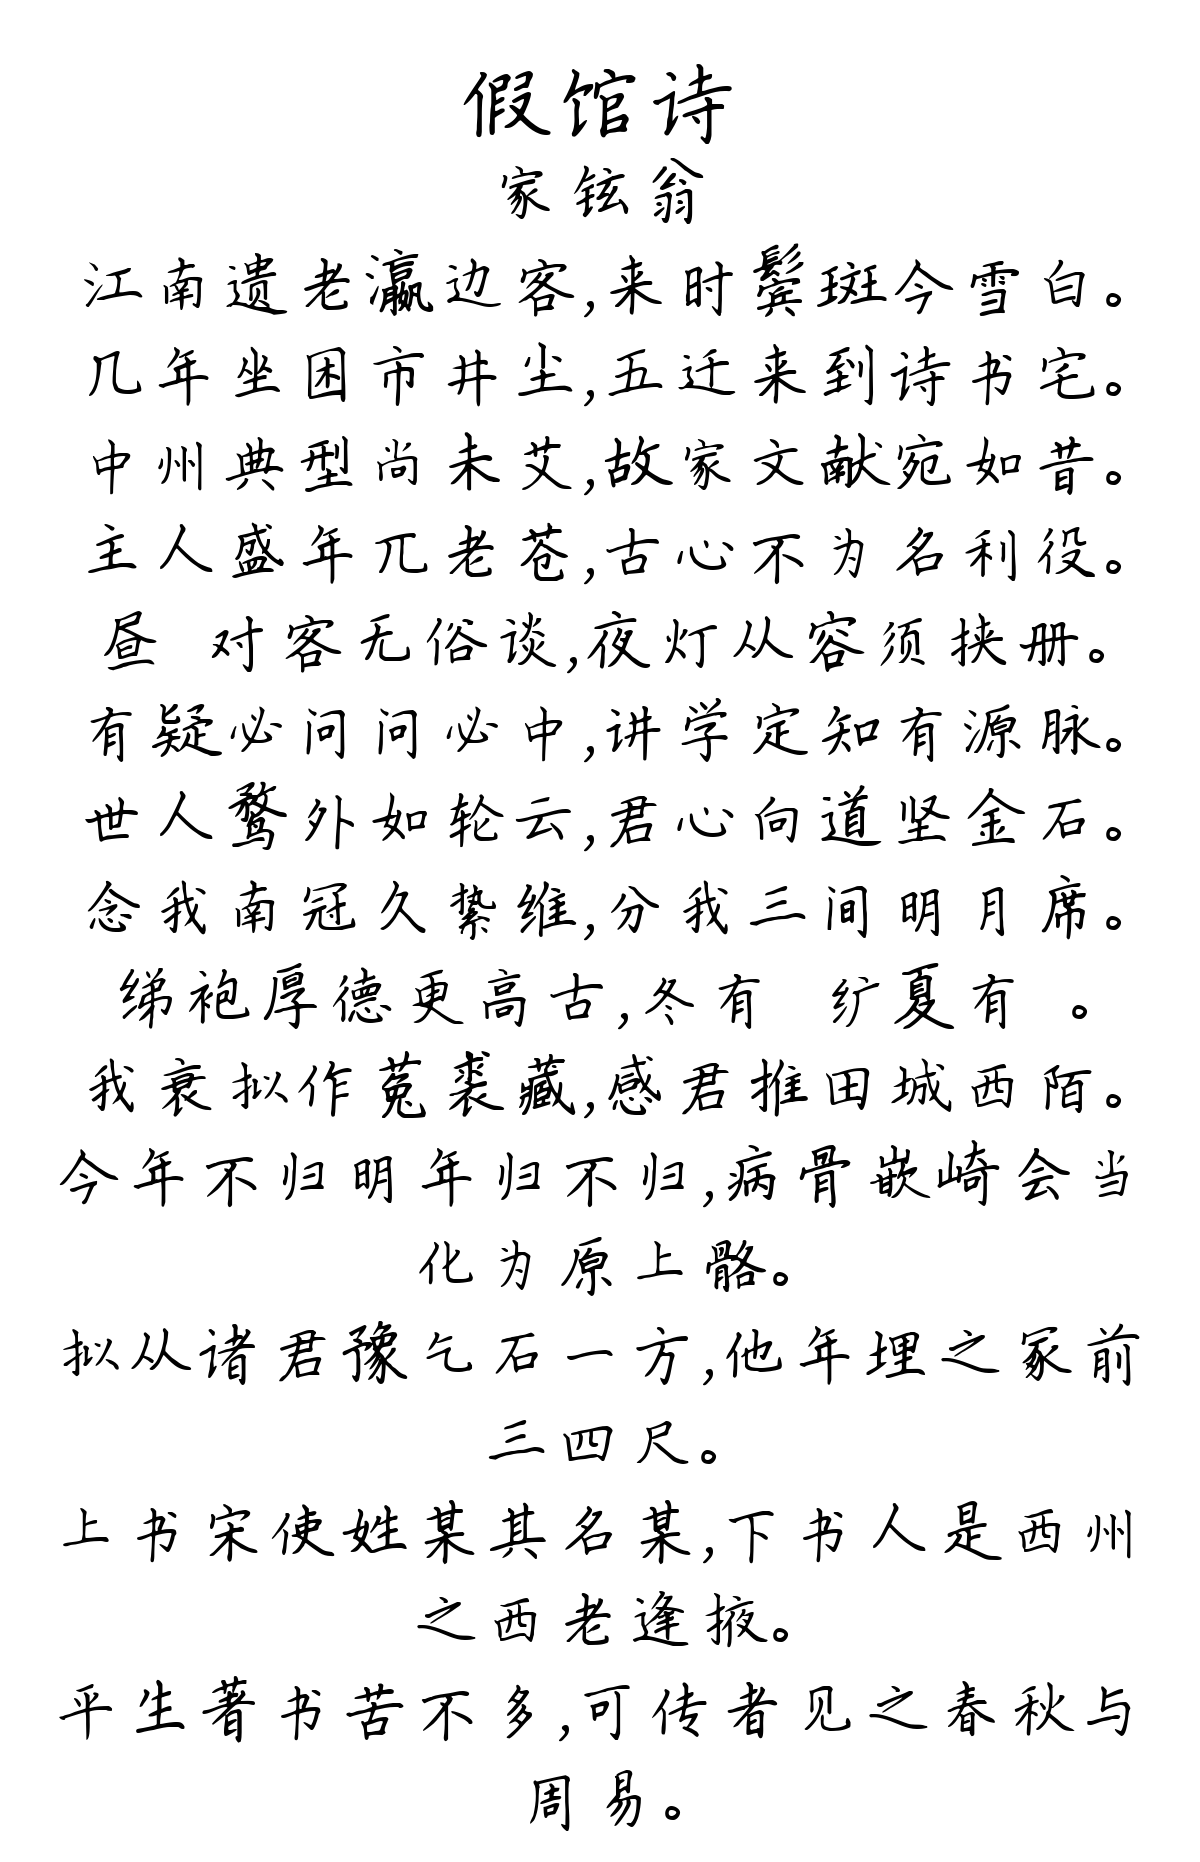 假馆诗
家铉翁
江南遗老瀛边客,来时鬓斑今雪白。
几年坐困市井尘,五迁来到诗书宅。
中州典型尚未艾,故家文献宛如昔。
主人盛年兀老苍,古心不为名利役。
昼 对客无俗谈,夜灯从容须挟册。
有疑必问问必中,讲学定知有源脉。
世人鹜外如轮云,君心向道坚金石。
念我南冠久絷维,分我三间明月席。
绨袍厚德更高古,冬有 纩夏有 。
我衰拟作菟裘藏,感君推田城西陌。
今年不归明年归不归,病骨嵌崎会当
化为原上骼。
拟从诸君豫乞石一方,他年埋之冢前
三四尺。
上书宋使姓某其名某,下书人是西州
之西老逢掖。
平生著书苦不多,可传者见之春秋与
周易。